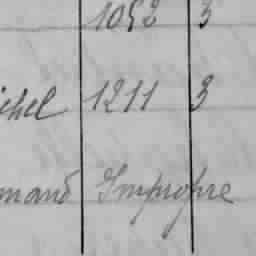 1052 3
ichel 1211 3
mand Impropre